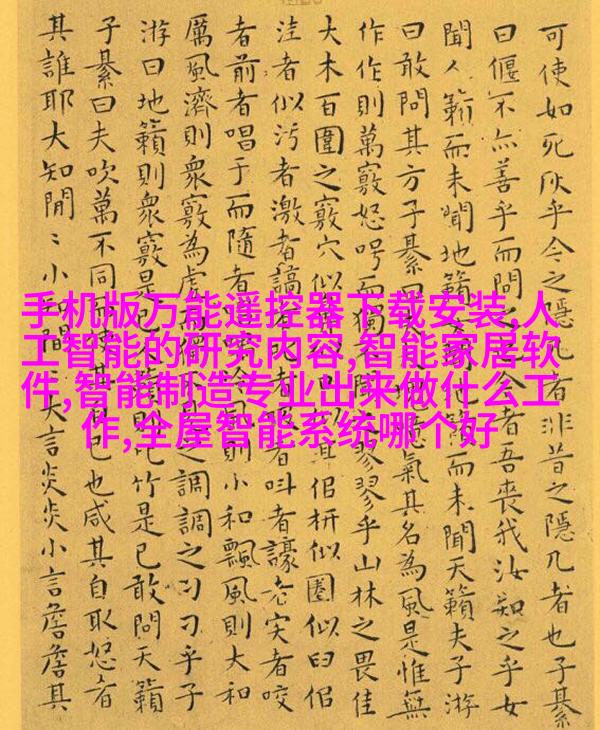 可使如死灰乎今之隱几者非昔之隱几者也子綦
曰偃不亦善乎而問今者吾喪我汝知之乎女
聞人籟而未聞地籟地籟而未聞天籟夫子游
曰敢問其方子綦曰噫氣其名為風是惟無
作作則萬竅怒呺而獨聞之翏翏乎山林之畏佳
大木百圍之竅穴似佀枅似圈似臼佀
洼者似污者激者謞者者叫者譹者宎者咬
者前者唱于而隨者泠風則小和飄風則大和
厲風濟則衆竅為虛而獨之調調之刁刁乎子
游曰地籟則衆竅是已則比竹是已敢問天籟
子綦曰夫吹萬不同而使其自已也咸其自取怒者
其誰耶大知閒〻小知間〻大言炎炎小言詹詹其
手机版万能遥控器下载安装,人
工智能的研究内容,智能家居软
件,智能制造专业出来做什么工
作,全屋智能系统哪个好